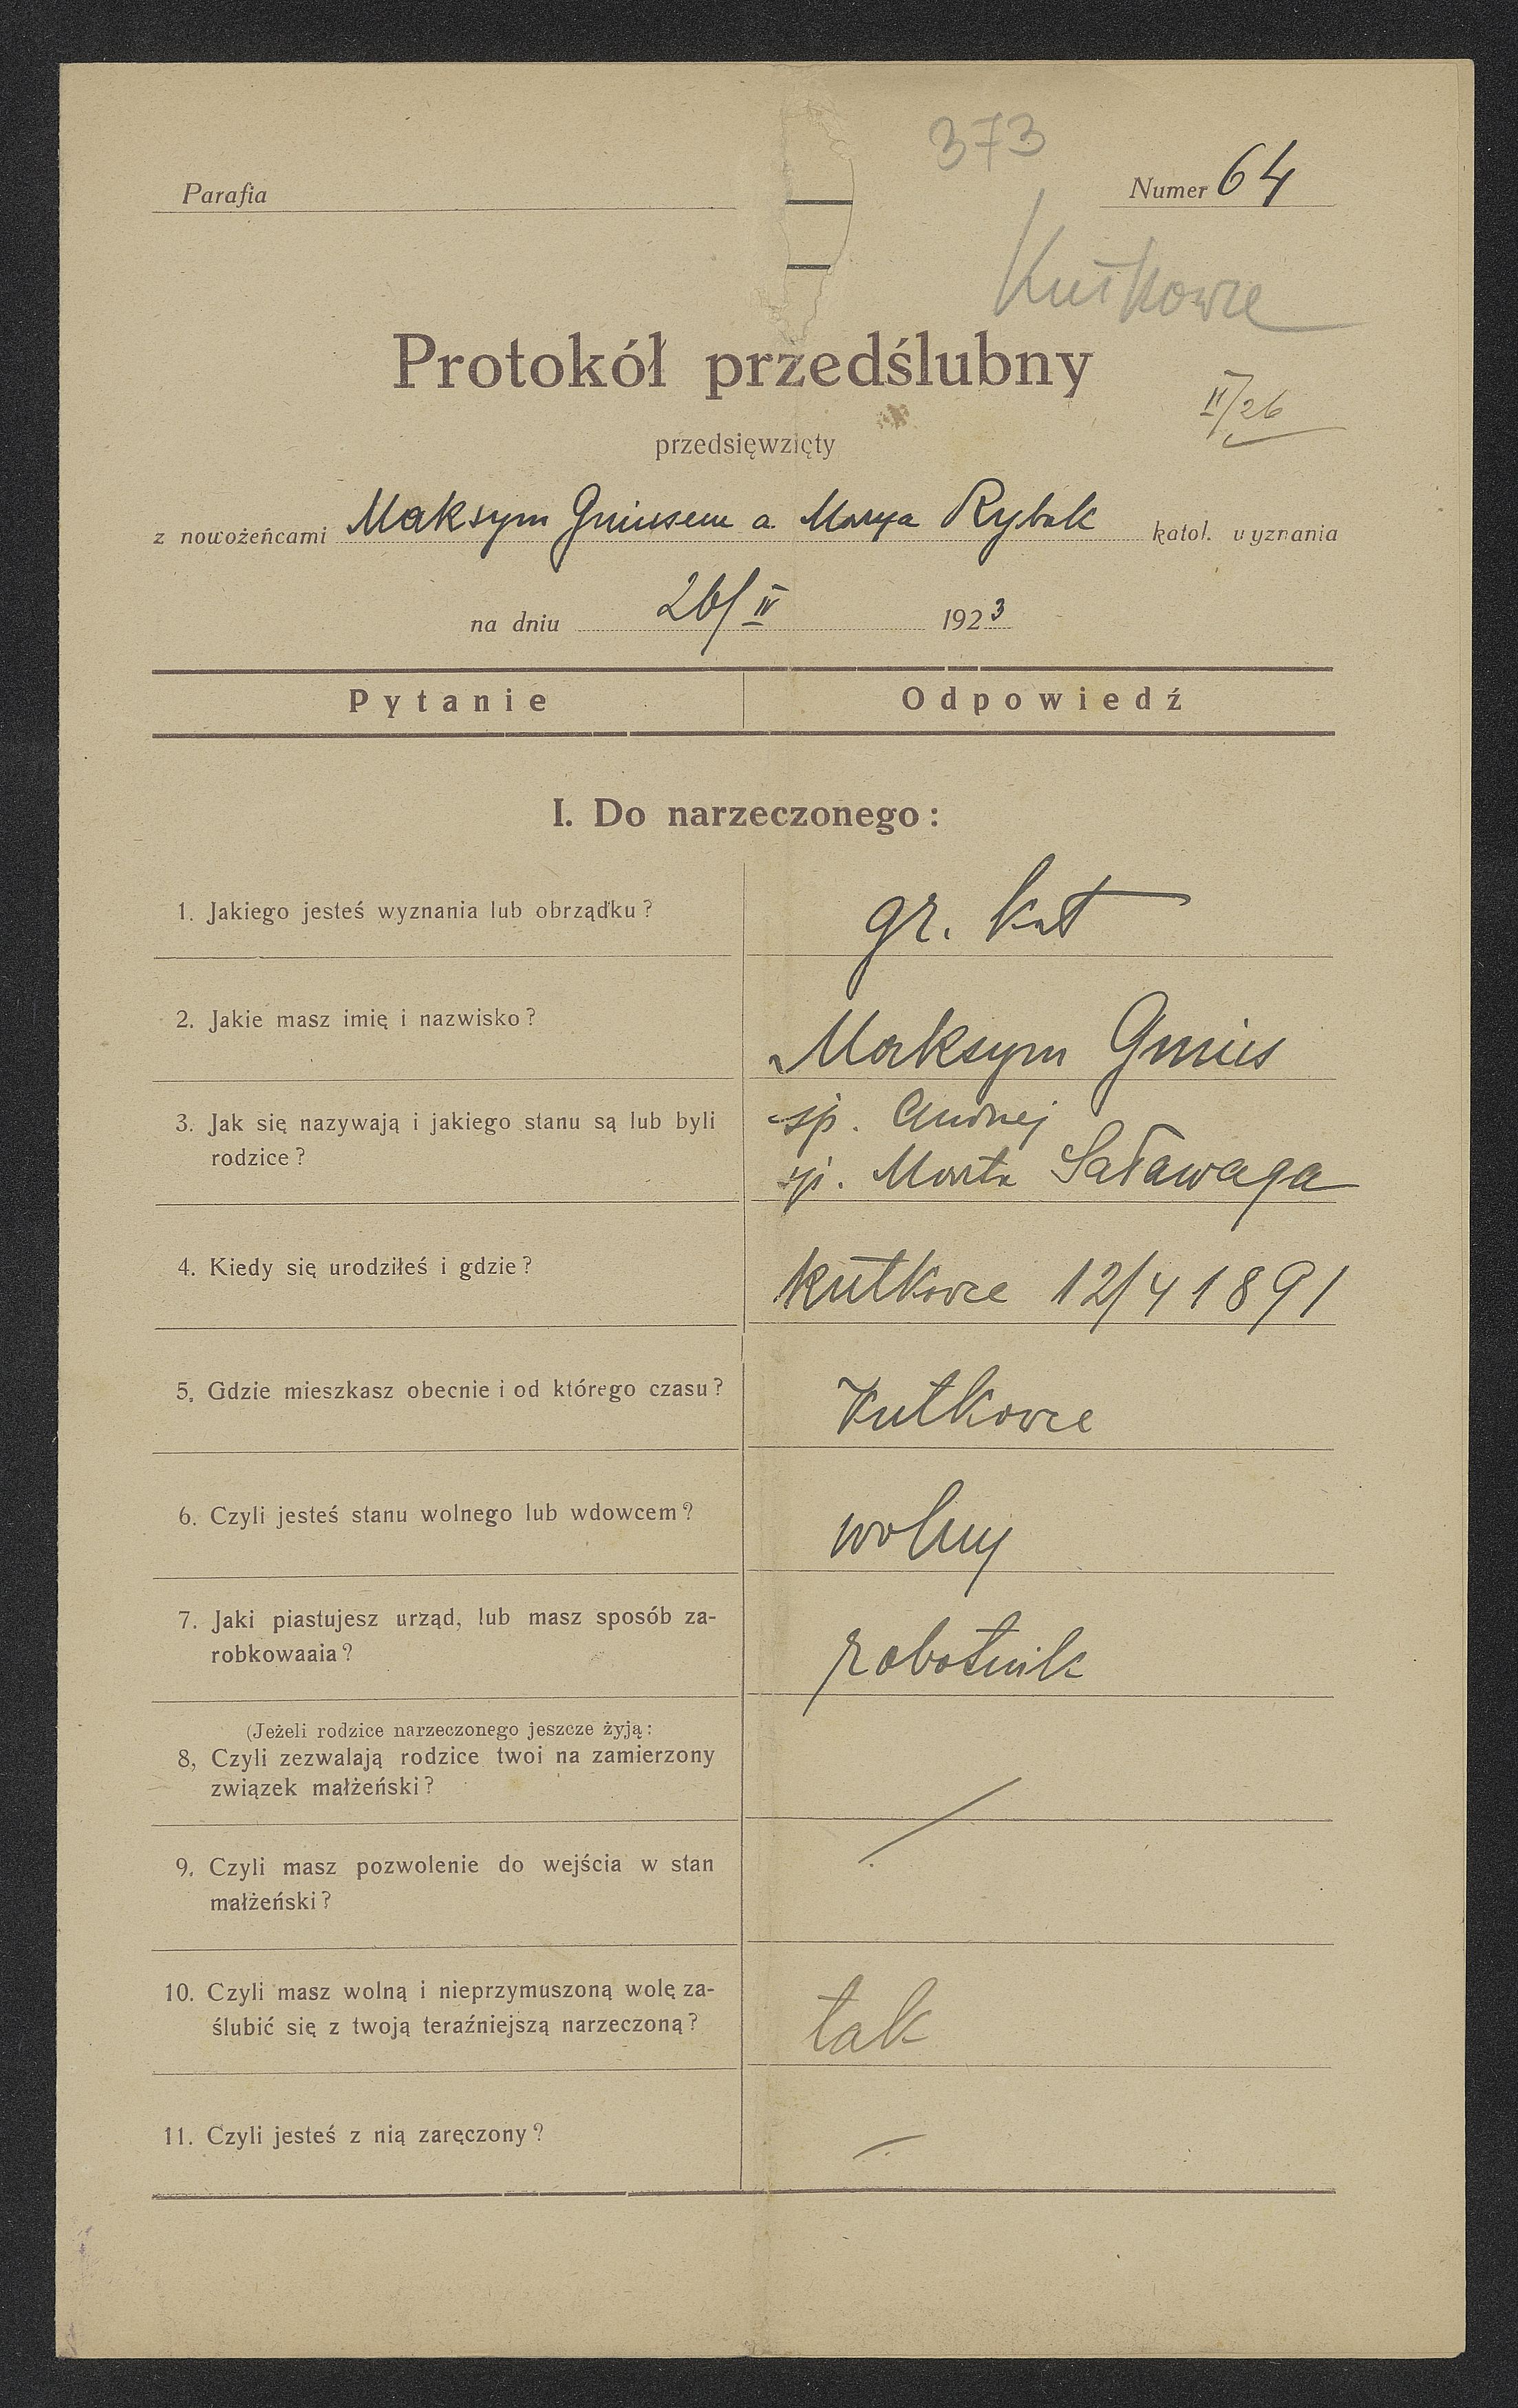 373
Parafia
Numer 64
Kutkowce
Protokół przedślubny
II/26
przedsięwzięty
z nowożeńcami Maksym Gniusem a Marya Rybak katol. wyznania
na dniu 26/IV 1923
Pytanie Odpowiedź
I. Do narzeczonego:
1. Jakiego jesteś wyznania lub obrządku? gr. kat
2. Jakie masz imię i nazwisko? Maksym Gnius
3. Jak się nazywają i jakiego stanu są lub byli sp. Andrej
rodzice? sp. Marta Saławaga
4. Kiedy się urodziłeś i gdzie? Kutkowce 12/4 1891
5, Gdzie mieszkasz obecnie i od którego czasu? Kutkowce
6. Czyli jesteś stanu wolnego lub wdowcem? wolny
7. Jaki piastujesz urząd, lub masz sposób za-
robkowaaia? robotnik
(Jeżeli rodzice narzeczonego jeszcze żyją:
8, Czyli zezwalają rodzice twoi na zamierzony
związek małżeński?
9. Czyli masz pozwolenie do wejścia w stan
małżeński?
10. Czyli masz wolną i nieprzymuszoną wolę za-
ślubić się z twoją teraźniejszą narzeczoną? tak
11. Czyli jesteś z nią zaręczony? -